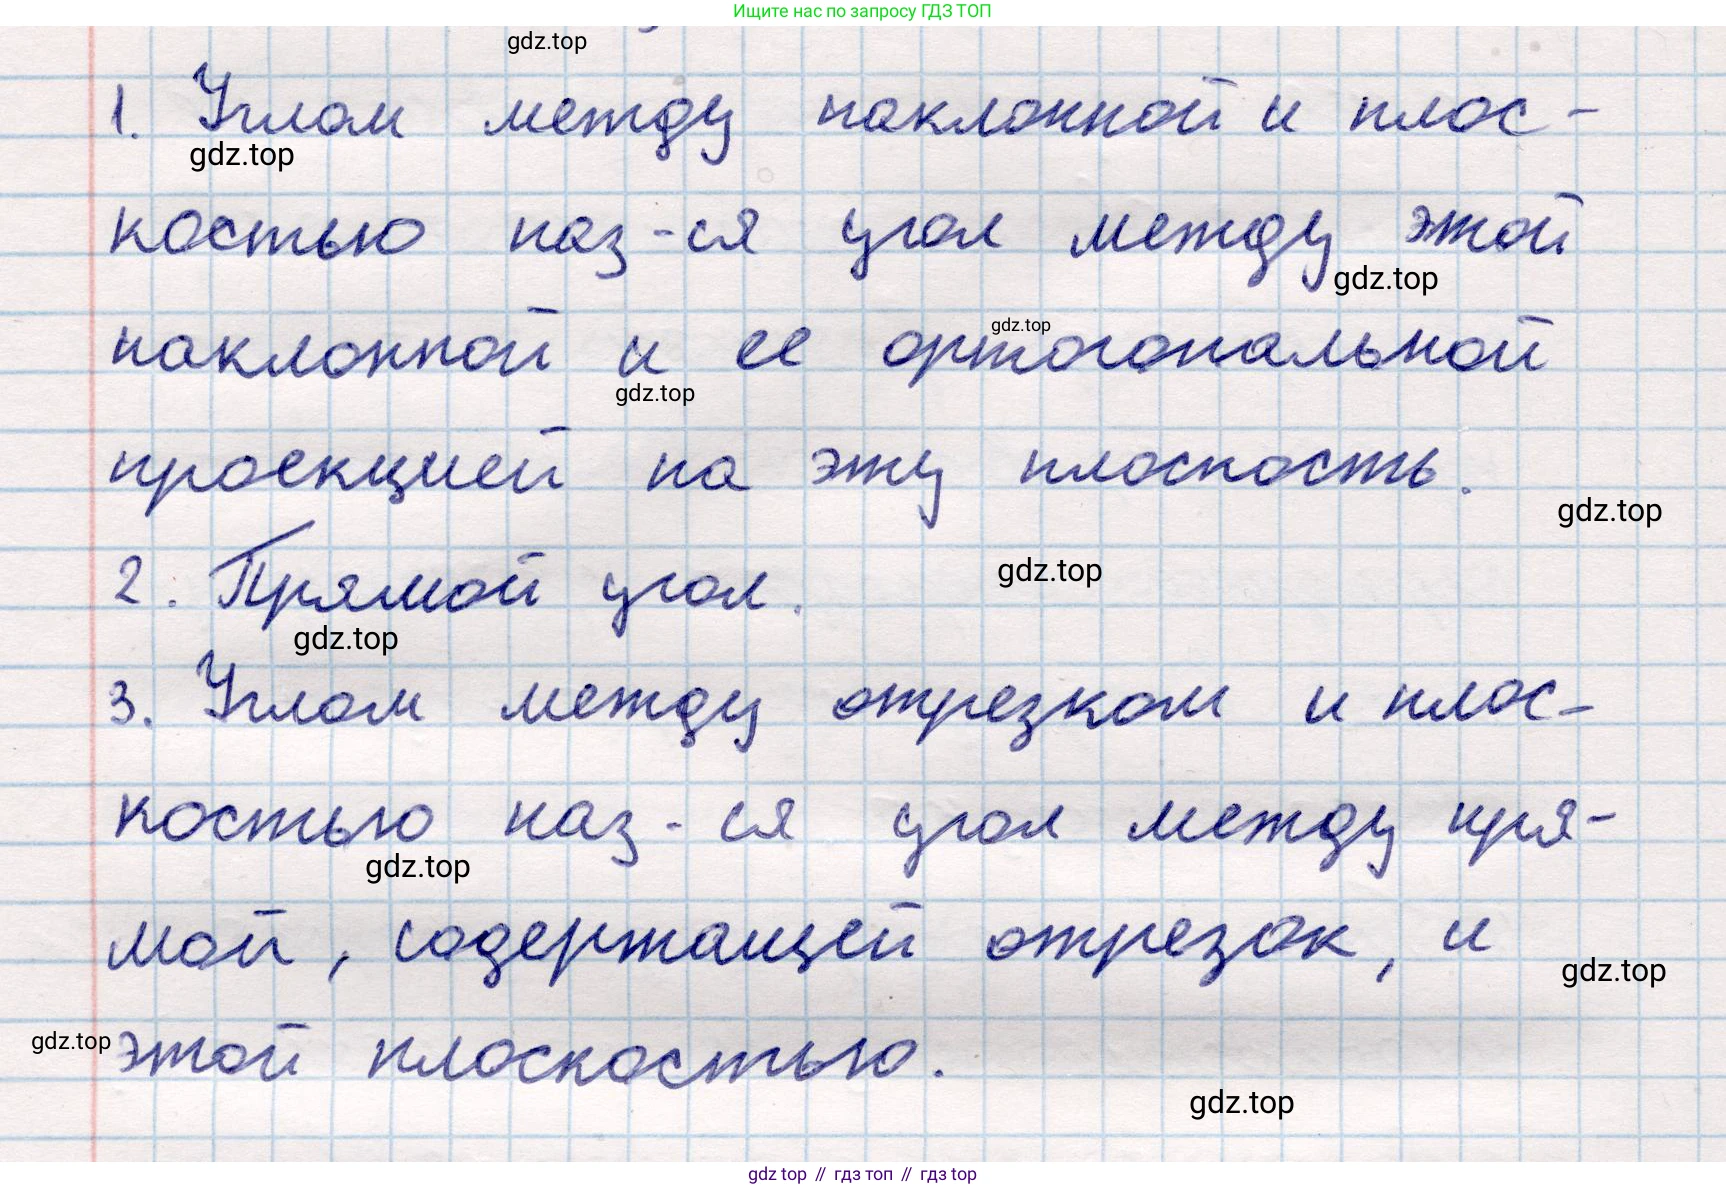 Ищите нас по запросу ГДЗ ТОП
gdz.top
1. Углом между наклонной и плос-
gdz.top
костью наз-ся угол между этой
gdz.top
наклонной и ее ортогональной
gdz.top
gdz.top
проекцией на эту плоскость.
gdz.top
2. Прямой угол.
gdz.top
gdz.top
3. Углом между отрезком и плос-
костью наз-ся угол между пря-
gdz.top
мой, содержащей отрезок, и
gdz.top
gdz.top
этой плоскостью.
gdz.top
gdz top // гдз топ // гдз top